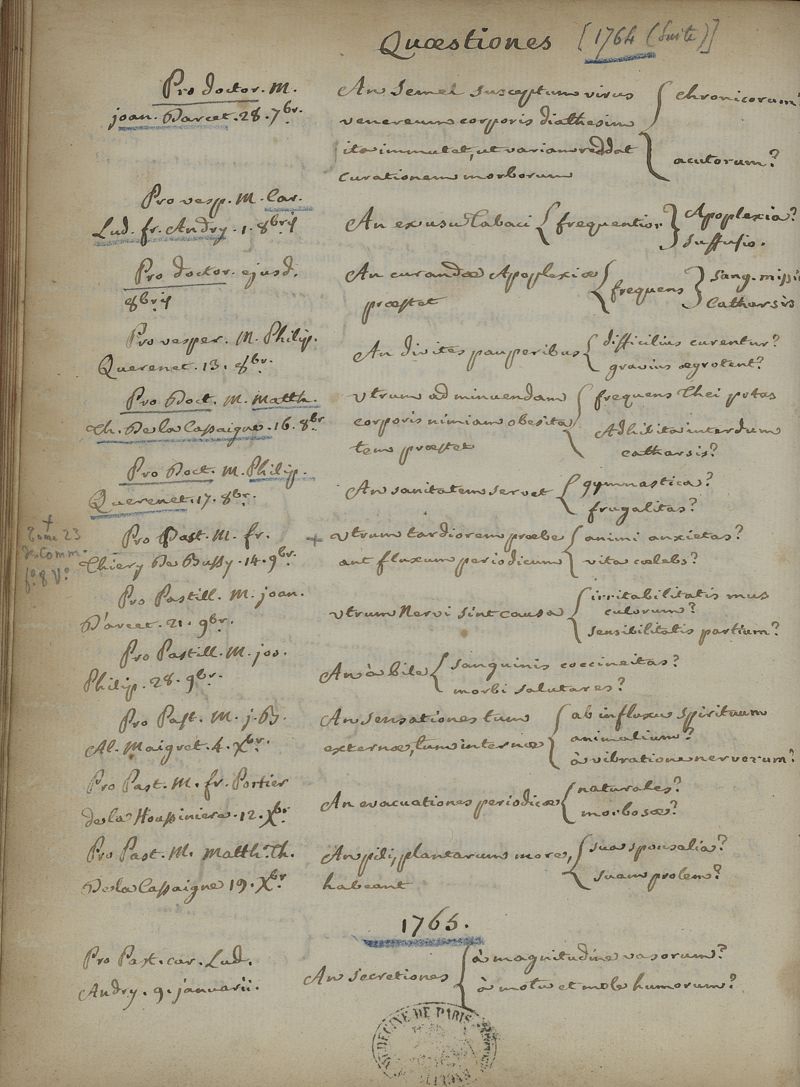 Quæstiones [1764 (Suite)]
Pro doctor. M.
joan. Darcet. 28. 7br.
An Semel susceptum virus
venereum corporis diathesim
ita immutet, ut variam reddat
curationem morborum
chronicorum?
acutorum?
Pro vesp. M. Car.
Lud. fr. Andry. 1. 8bris
An ex usu Tabaci frequentior
Apoplexia?
Suffusio.
Pro doctor. ejusd.
8bris
An curandæ Apoplexiæ
præstet
frequens
Sang. missi
Catharsis
Pro vesper. M. Philip.
Querenet. 13. 8br.
An divites pauperibus
difficilius curentur?
gravius ægrotent?
Pro Doct. M. Matth.
Th. De la Cassaigne. 16. 8br
Utrum ad minuendam
corporis nimiam obesita
tem præstet
frequens Thei potus
Adhibita interdum
catharsis?
Pro Doct. M. Philip.
Querenet. 17. 8br.
An sanitatem servet
gymnastica?
frugalitas?
+
Tome 23
de Comm.
fo. 8 Vo
Pro Past. M. fr.
Thiery De Bussy. 14. 9br.
+ Utrum tardiorem præbe
ant fluxum periodicum
animi anxietas?
vita cœlebs?
Pro Pastill. M. joan.
D'arcet. 21. 9br.
Utrum Nervi sint causa
irritabilitatis mus
culorum?
sensibilitatis partium?
Pro Pastill. M. jos.
Philip. 28. 9br.
An à bile
sanguinis coccineitas?
morbi salutares?
Pro Past. M. j. B.
Al. Maigret. 4. Xbr.
An sensationes tum
externæ, tum internæ
ab influxu spirituum
animalium?
à vibratione nervorum?
Pro Past. M. fr. Portier
de la Houssiniere. 12. Xbr
An evacuationes periodicæ
naturales?
morbosæ?
Pro Past. M. Matth. Th.
De la Cassaigne 19. Xbr
An pili, plantarum more,
habeant
sua sponsalia?
suam prolem?
1765.
Pro Past. car. Lud.
Andry. 9. januarii.
An secretiones
à magnitudine vasorum?
à motu et mole humorum?
MÉDECINE DE PARIS